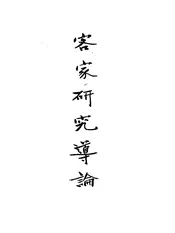 客家研究導論